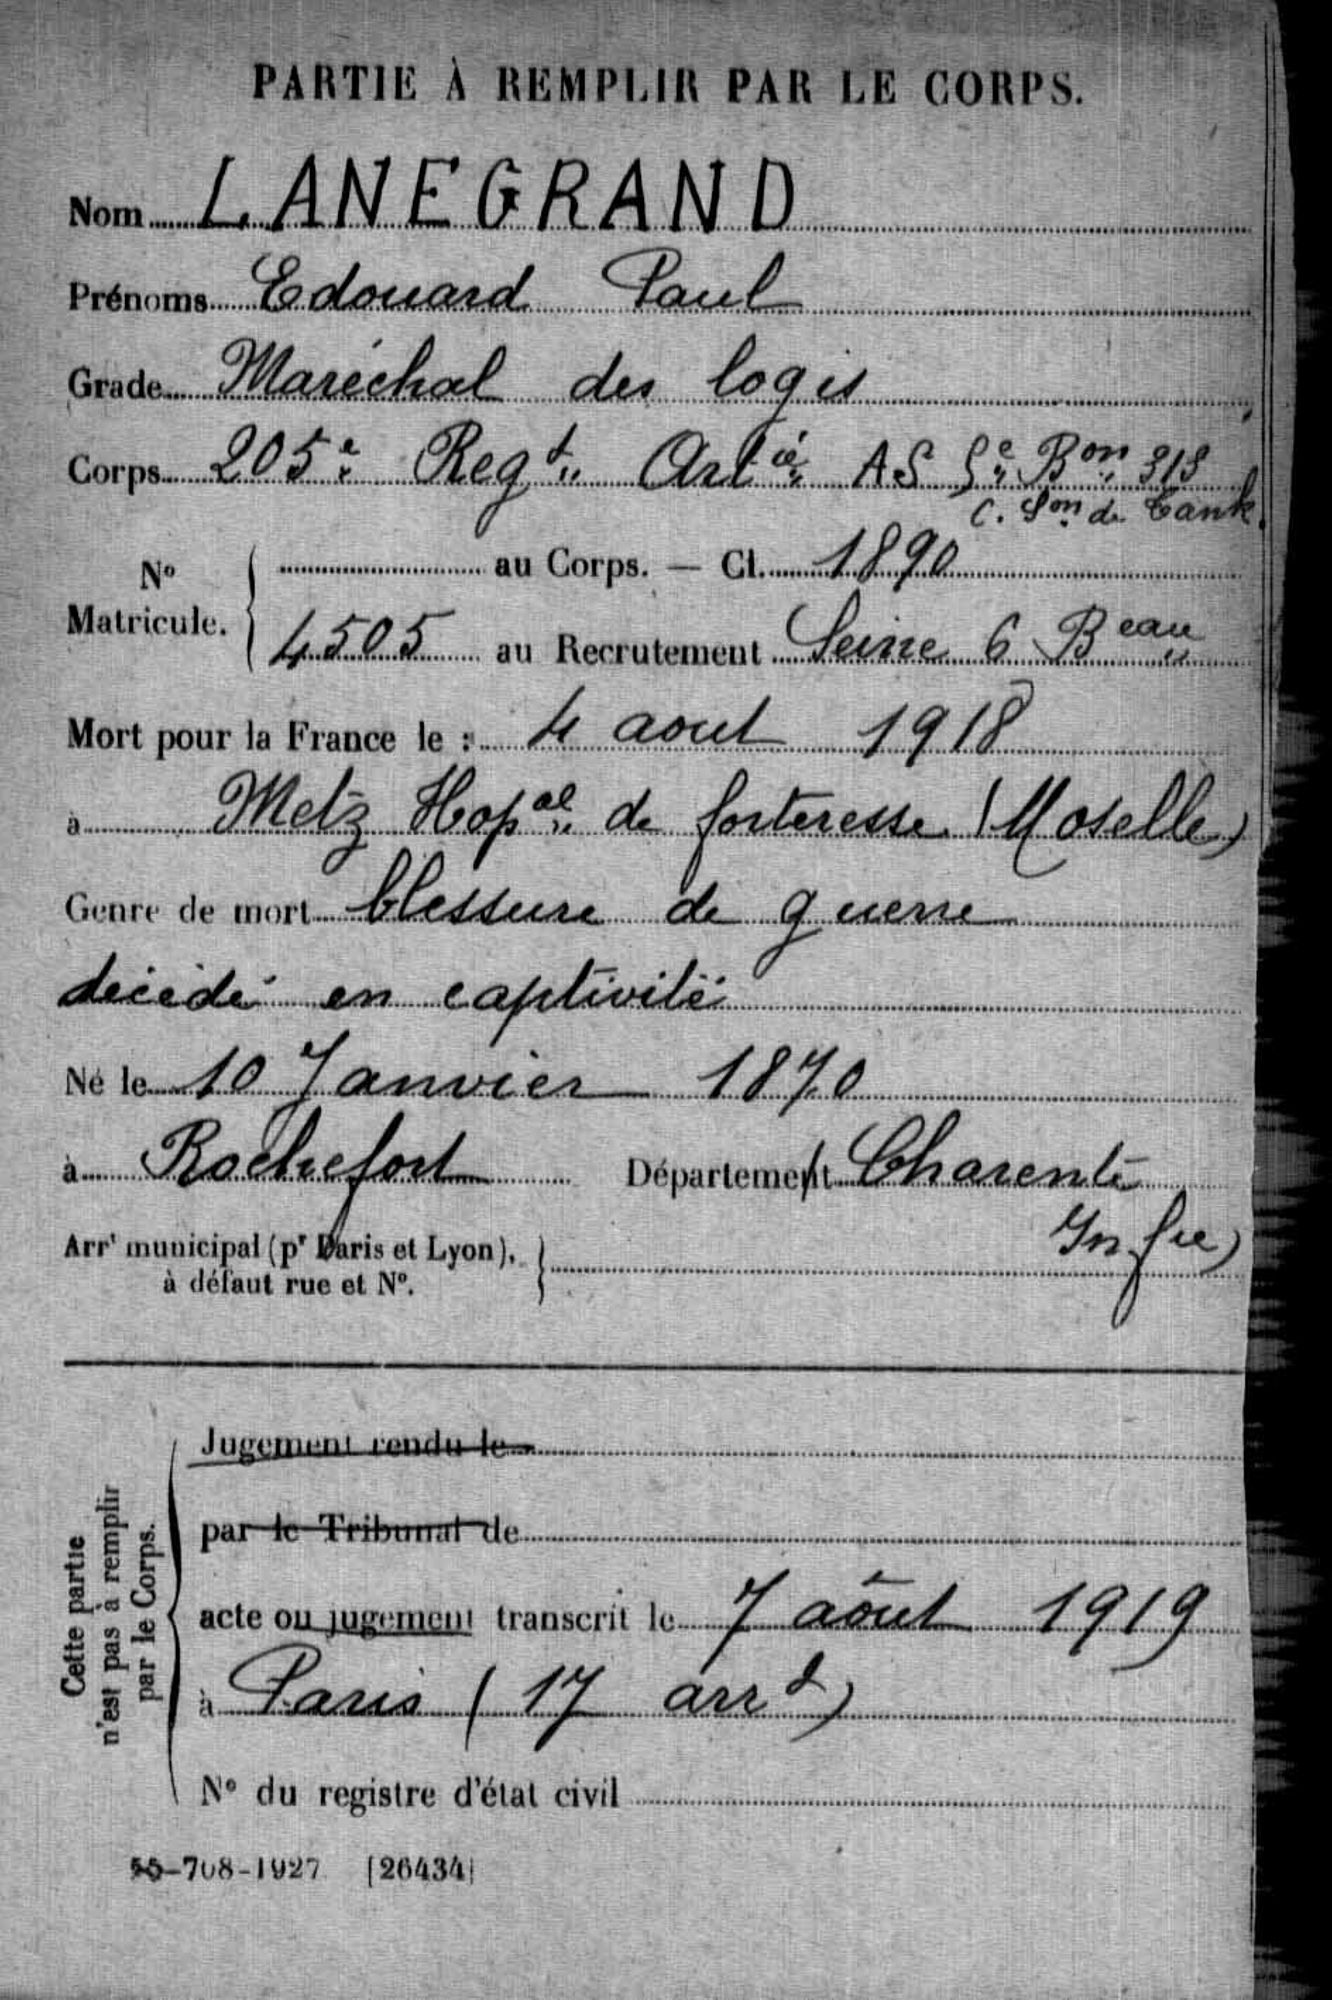 PARTIE À REMPLIR PAR LE CORPS.
Nom LANEGRAND
Prénoms Edouard Paul
Grade Maréchal des logis
Corps 205e Regt Artie AS 5e Bon 313
C. Son de Tank
No Matricule. au Corps. — Cl. 1890
4505 au Recrutement Seine 6 Beau
Mort pour la France le : 4 aout 1918
à Metz Hopal de forteresse (Moselle)
Genre de mort blessure de guerre
décédé en captivité
Né le 10 Janvier 1870
à Rochefort Département Charente
Infre)
Arrt municipal (pr Paris et Lyon),
à défaut rue et No.
Cette partie
n'est pas à remplir
par le Corps.
Jugement rendu le
par le Tribunal de
acte ou jugement transcrit le 7 aôut 1919
à Paris (17 arrd)
No du registre d'état civil
55-708-1927 [26434]